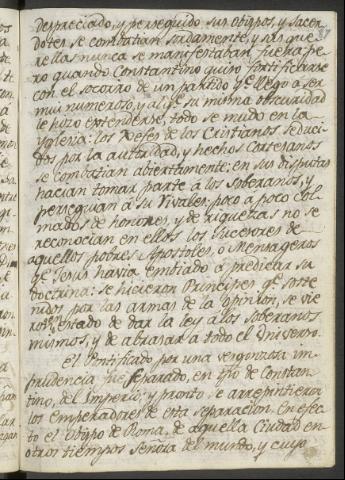 despreciado, y perseguido sus obispos, y Sacer
dotes se combatian sordamente, y sus que
rellas nunca se manifestaban fuera pe
ro quando Constantino quiso fortificarse
con el socorro de un partido qe. llego a ser
mui numeroso, y al qe. su misma obscuridad
le hizo extenderse, todo se mudo en la
Yglesia: los Xefes de los Cristianos seduci
dos por la autoridad, y hechos Cortesanos
se combatian abiertamente; en sus disputas
hacian tomar parte a los Soberanos, y
perseguian a su Rivales: poco a poco col
mados de honores, y de riquezas no se
reconocian en ellos los sucesores de
aquellos pobres Apostoles, o Mensageros
qe. Jesus havia embiado a predicar su
Doctrina: se hicieron Principes qe. soste
nidos por las armas de la opinion, se vie
ron en estado de dar la ley a los Soberanos
mismos, y de abrasar a todo el Universo.
El Pontificado por una vergonzosa im
prudencia fue separado, en tpo. de Constan
tino, del Imperio; y pronto se arrepintieron
los emperadores de esta separacion. En efec
to el Obispo de Roma, de aquella Ciudad en
otros tiempos Señora del mundo, y cuyo